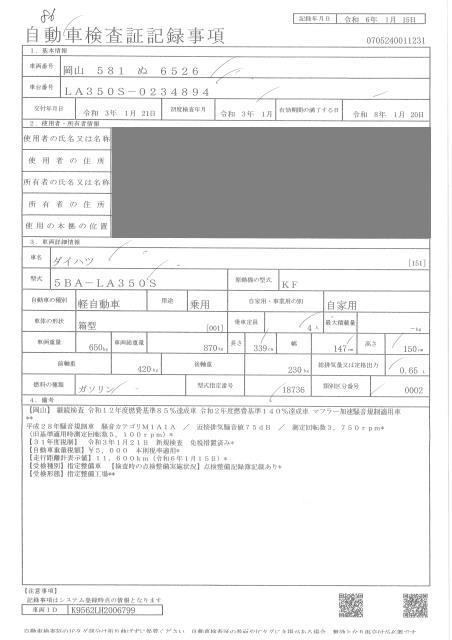 86
記録年月日 令和 6年 1月 15日
自動車検査証記録事項
0705240011231
1. 基本情報
車両番号 岡山 581 ぬ 6526
車台番号 LA350S-0234894
交付年月日 令和 3年 1月 21日 初度検査年月 令和 3年 1月 有効期間の満了する日 令和 8年 1月 20日
2. 使用者・所有者情報
使用者の氏名又は名称
使用者の住所
所有者の氏名又は名称
所有者の住所
使用の本拠の位置
3. 車両詳細情報
車名 ダイハツ [151]
型式 5BA-LA350S 原動機の型式 KF
自動車の種別 軽自動車 用途 乗用 自家用・事業用の別 自家用
車体の形状 箱型 [001] 乗車定員 4人 最大積載量 -kg
車両重量 650kg 車両総重量 870kg 長さ 339cm 幅 147cm 高さ 150cm
前軸重 420kg 後軸重 230kg 総排気量又は定格出力 0.65 L
燃料の種類 ガソリン 型式指定番号 18736 類別区分番号 0002
4. 備考
【岡山】 継続検査 令和12年度燃費基準85%達成車 令和2年度燃費基準140%達成車 マフラー加速騒音規制適用車
**
平成28年騒音規制車 騒音カテゴリM1A1A ／ 近接排気騒音値75dB ／ 測定回転数3,750rpm*
(旧基準適用時測定回転数5,100rpm)*
【31年度税制】 令和3年1月21日 新規検査 免税措置済み*
【自動車重量税額】￥5,000 本則税率適用*
【走行距離計表示値】11,600km(令和6年1月15日)*
【受検種別】指定整備車 【検査時の点検整備実施状況】点検整備記録簿記載あり*
【受検形態】指定整備工場**
【注意事項】
記録事項はシステム登録時点の情報となります
車両ID K9562LH2006799